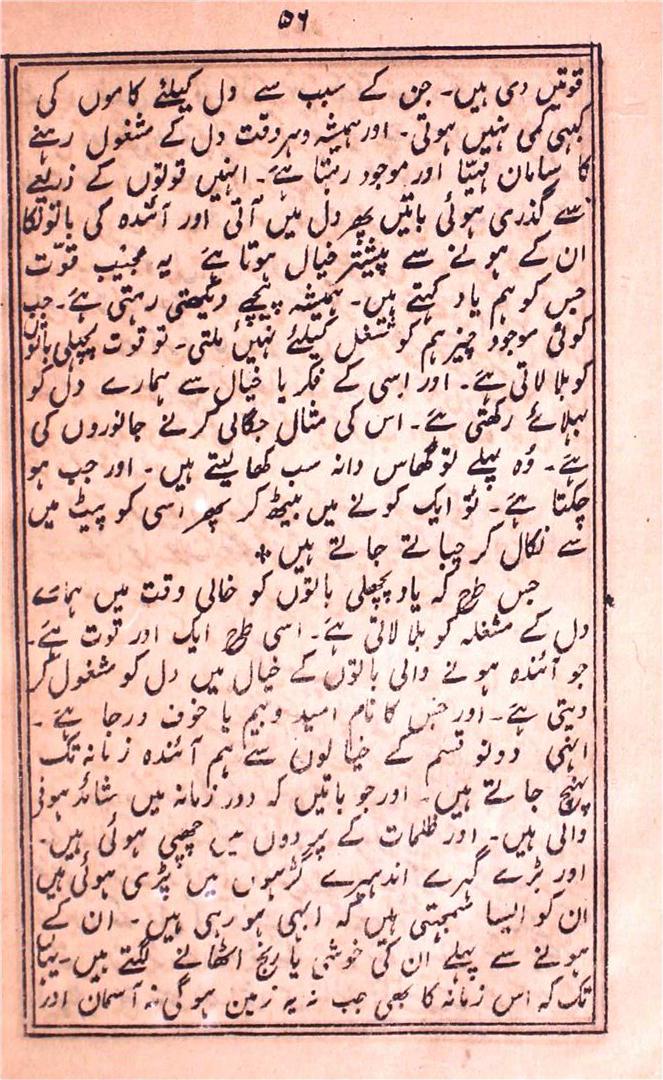 ۵۶
قوتیں دی ہیں۔ جن کے سبب سے دل کیلئے کاموں کی
کبہی کمی نہیں ہوتی۔ اور ہمیشہ وہر وقت دل کے مشغول رہنے
کا سامان مہیّا اور موجود رہتا ہے۔ انہیں قوتوں کے ذریعے
سے گذری ہوئی باتیں پھر دل میں آتی اور آئندہ کی باتونکا
ان کے ہونے سے پیشتر خیال ہوتا ہے یہ عجیب قوّت
جس کو ہم یاد کہتے ہیں۔ ہمیشہ پیچھے دیکھتی رہتی ہے۔ جب
کوئی موجود چیز ہم کو شغل کیلئے نہیں ملتی۔ تو قوت پچھلی باتوں
کو بلا لاتی ہے۔ اور اسی کے فکر یا خیال سے ہمارے دل کو
بہلائے رکھتی ہے۔ اس کی مثال جگالی کرنے جانوروں کی
ہے۔ وُہ پہلے تو گھاس دانہ سب کھا لیتے ہیں۔ اور جب ہو
چکتا ہے۔ تو ایک کونے میں بیٹھ کر پھر اسی کو پیٹ میں
سے نکال کر چباتے جاتے ہیں ٭
جس طرح کہ یاد پچھلی باتوں کو خالی وقت میں ہمارے
دل کے مشغلہ کو بلا لاتی ہے۔ اسی طرح ایک اور قوت ہے۔
جو آئندہ ہونے والی باتوں کے خیال میں دل کو مشغول کر
دیتی ہے۔ اور جس کا نام امید و بیم یا خوف و رجا ہے۔
انہی دونو قسم کے خیالوں سے ہم آئندہ زمانہ تک
پہنچ جاتے ہیں۔ اور جو باتیں کہ دور زمانہ میں شائد ہونی
والی ہیں۔ اور ظلمات کے پردوں میں چھپی ہوئی ہیں۔
اور بڑے گہرے اندہیرے گڑہوں میں پڑی ہوئی ہیں
ان کو ایسا سمجہتی ہیں کہ ابہی ہو رہی ہیں۔ ان کے
ہونے سے پہلے ان کی خوشی یا رنج اٹھانے لگتے ہیں۔ یہاں
تک کہ اس زمانہ کا بھی جب نہ یہ زمین ہوگی نہ آسمان اور